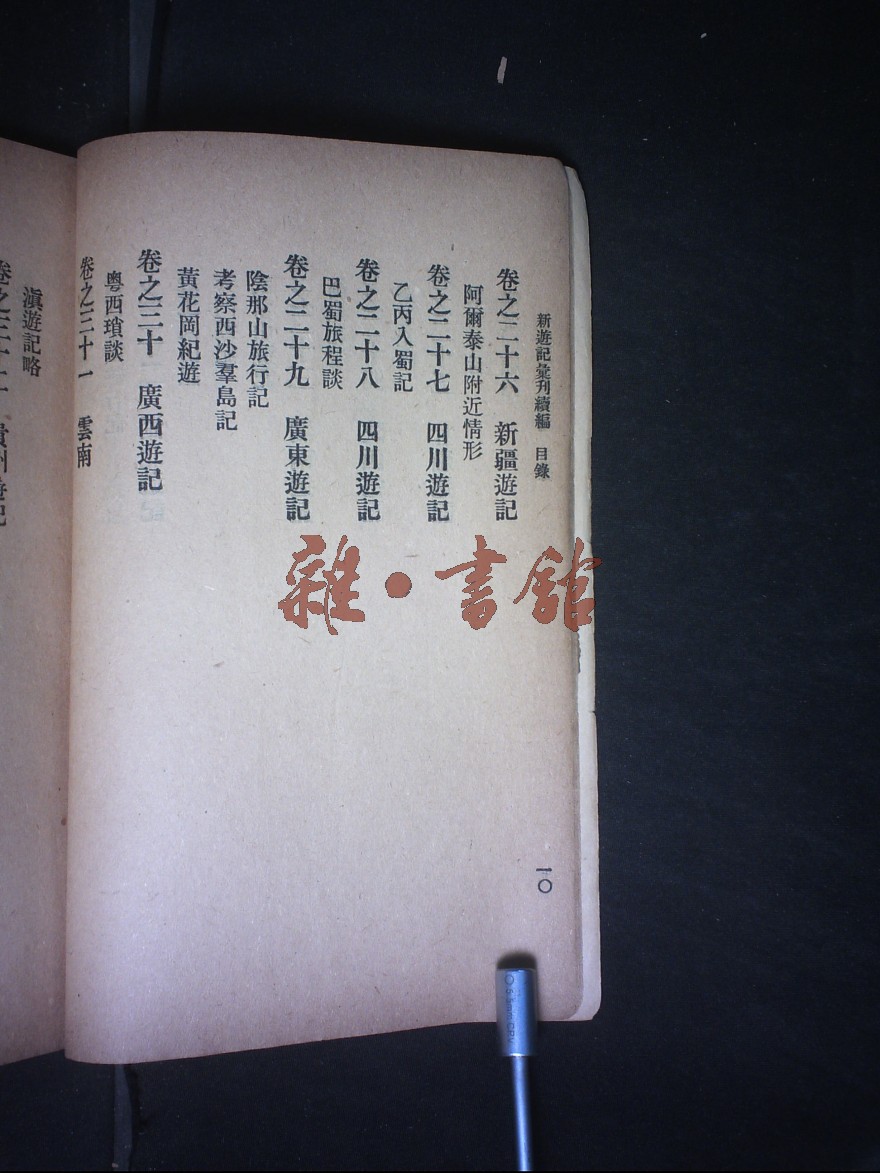 新遊記彙刊續編　目錄
一〇
卷之二十六　新疆遊記
阿爾泰山附近情形
卷之二十七　四川遊記
乙丙入蜀記
卷之二十八　四川遊記
巴蜀旅程談
卷之二十九　廣東遊記
陰那山旅行記
考察西沙羣島記
黃花岡紀遊
卷之三十　廣西遊記
粵西瑣談
卷之三十一　雲南
滇遊記略
雜·書館